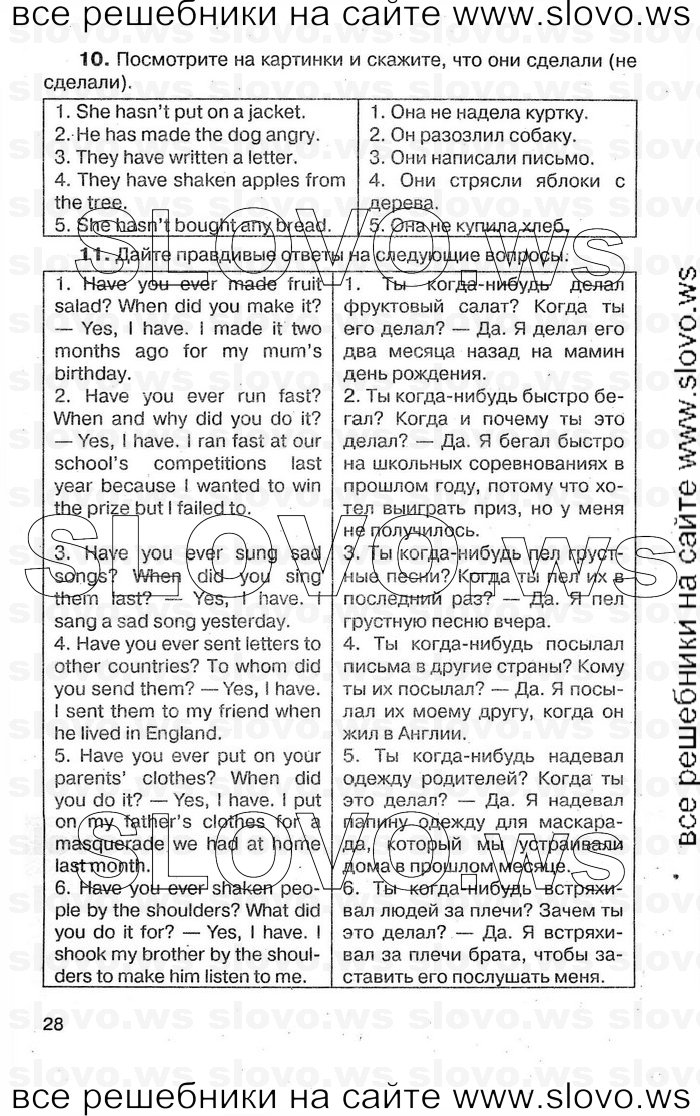 все решебники на сайте www.slovo.ws
10. Посмотрите на картинки и скажите, что они сделали (не
сделали).
1. She hasn't put on a jacket.
2. He has made the dog angry.
3. They have written a letter.
4. They have shaken apples from
the tree.
5. She hasn't bought any bread.
1. Она не надела куртку.
2. Он разозлил собаку.
3. Они написали письмо.
4. Они стрясли яблоки с
дерева.
5. Она не купила хлеб.
11. Дайте правдивые ответы на следующие вопросы.
1. Have you ever made fruit
salad? When did you make it?
— Yes, I have. I made it two
months ago for my mum's
birthday.
2. Have you ever run fast?
When and why did you do it?
— Yes, I have. I ran fast at our
school's competitions last
year because I wanted to win
the prize but I failed to.
3. Have you ever sung sad
songs? When did you sing
them last? — Yes, I have. I
sang a sad song yesterday.
4. Have you ever sent letters to
other countries? To whom did
you send them? — Yes, I have.
I sent them to my friend when
he lived in England.
5. Have you ever put on your
parents' clothes? When did
you do it? — Yes, I have. I put
on my father's clothes for a
masquerade we had at home
last month.
6. Have you ever shaken peo-
ple by the shoulders? What did
you do it for? — Yes, I have. I
shook my brother by the shoul-
ders to make him listen to me.
1. Ты когда-нибудь делал
фруктовый салат? Когда ты
его делал? — Да. Я делал его
два месяца назад на мамин
день рождения.
2. Ты когда-нибудь быстро бе-
гал? Когда и почему ты это
делал? — Да. Я бегал быстро
на школьных соревнованиях в
прошлом году, потому что хо-
тел выиграть приз, но у меня
не получилось.
3. Ты когда-нибудь пел груст-
ные песни? Когда ты пел их в
последний раз? — Да. Я пел
грустную песню вчера.
4. Ты когда-нибудь посылал
письма в другие страны? Кому
ты их посылал? — Да. Я посы-
лал их моему другу, когда он
жил в Англии.
5. Ты когда-нибудь надевал
одежду родителей? Когда ты
это делал? — Да. Я надевал
папину одежду для маскара-
да, который мы устраивали
дома в прошлом месяце.
6. Ты когда-нибудь встряхи-
вал людей за плечи? Зачем ты
это делал? — Да. Я встряхи-
вал за плечи брата, чтобы за-
ставить его послушать меня.
SLOVO.ws
SLOVO.ws
SLOVO.ws
все решебники на сайте www.slovo.ws
28
все решебники на сайте www.slovo.ws